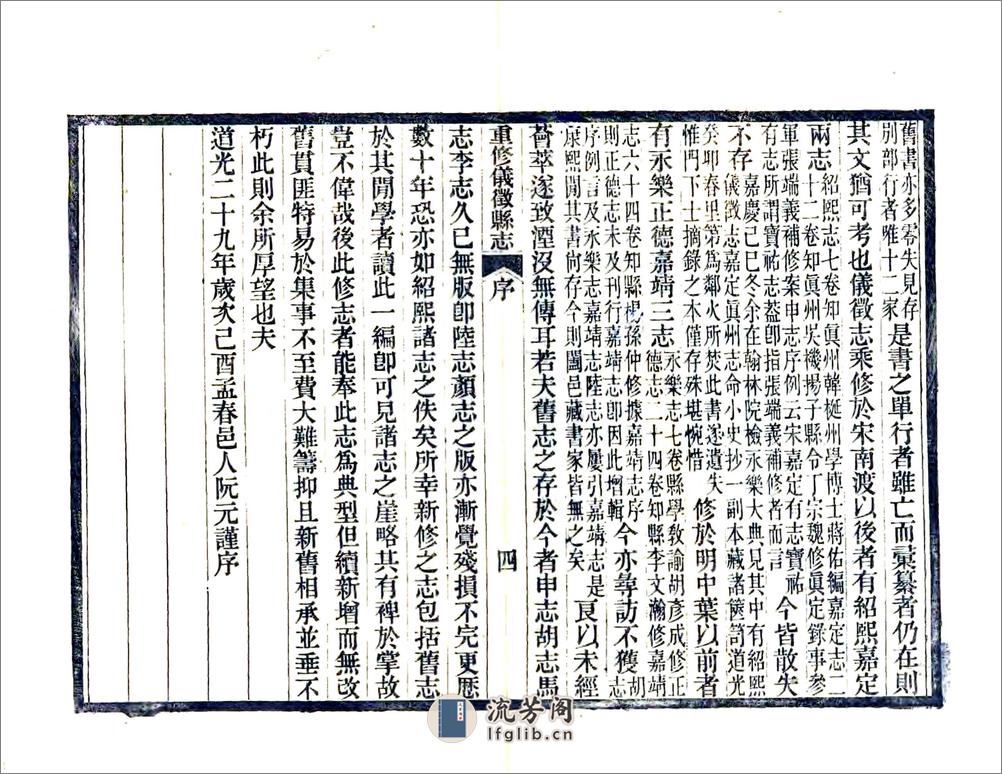 舊書亦多零失見存
別部行者唯十二家
是書之單行者雖亡而彙纂者仍在則
其文猶可考也儀徵志乘修於宋南渡以後者有紹熙嘉定
兩志
紹熙志七卷知眞州韓梃州學博士蔣佑編嘉定志二
十二卷知眞州吳機揚子縣令丁宗魏修眞定錄事參
軍張端義補修案申志序例云宋嘉定有志寶祐
有志所謂寶祐志蓋卽指張端義補修者而言
今皆散失
不存
嘉慶己巳冬余在翰林院檢永樂大典見其中有紹熙
儀徵志嘉定眞州志命小史抄一副本藏諸篋笥道光
癸卯春里第爲鄰火所焚此書遂遺失
惟門下士摘錄之本僅存殊堪惋惜
修於明中葉以前者
有永樂正德嘉靖三志
永樂志七卷縣學敎諭胡彥成修正
德志二十四卷知縣李文瀚修嘉靖
志六十四卷知縣楊孫仲修據嘉靖志序
則正德志未及刊行嘉靖志卽因此增輯
今亦尋訪不獲
胡志
序例言及永樂志嘉靖志陸志亦屢引嘉靖志是
康熙閒其書尙存今則闔邑藏書家皆無之矣
良以未經
薈萃遂致湮沒無傳耳若夫舊志之存於今者申志胡志馬
重修儀徵縣志 序 四
志李志久已無版卽陸志顏志之版亦漸覺殘損不完更歷
數十年恐亦如紹熙諸志之佚矣所幸新修之志包括舊志
於其閒學者讀此一編卽可見諸志之崖略其有裨於掌故
豈不偉哉後此修志者能奉此志爲典型但續新增而無改
舊貫匪特易於集事不至費大難籌抑且新舊相承並垂不
朽此則余所厚望也夫
道光二十九年歲次己酉孟春邑人阮元謹序
流芳阁
lfglib.cn